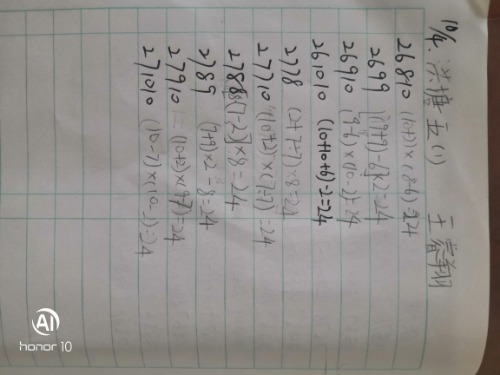 10/4. (1) 王睿翔
26810 (10+2)×(8-6)=24
2699 [(9+9)-6]×2=24
26910 (9-6)×(10-2)=24
261010 (10+10+6)-2=24
2778
27710 (10+2)×
2788 ×8=24
2789 (7+9)×2-8=24
27910 (10+2)×(9-7)=24
271010 (10-7)×(10-2)=24
AI
honor 10